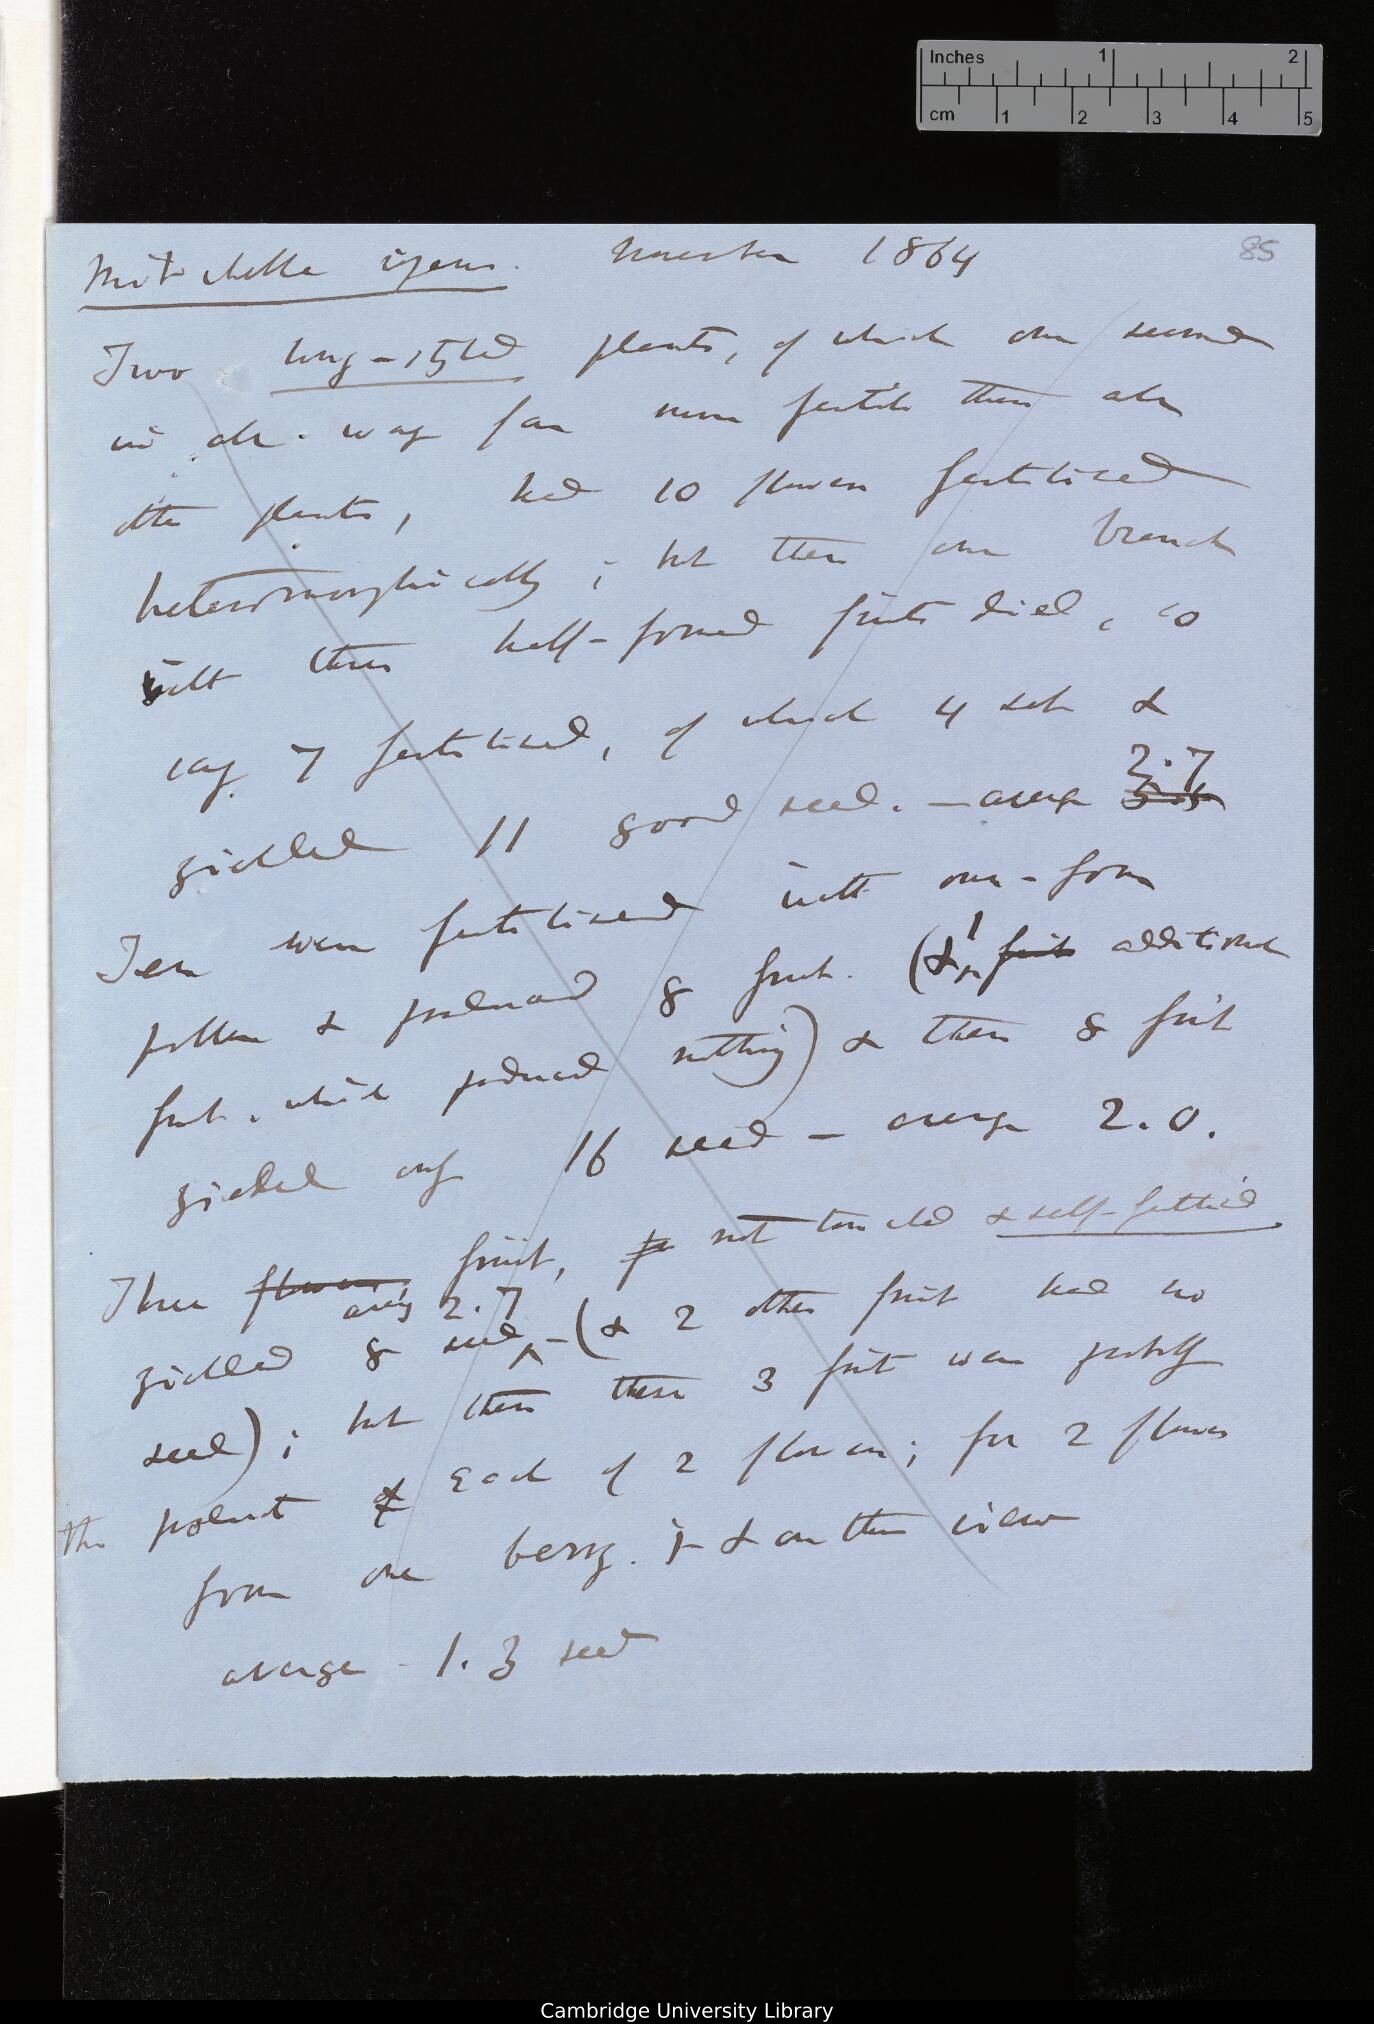 Inches 1 2
cm 1 2 3 4 5
85
Mitchella November 1864
Two long-styled plants, of which one seemed
in  way far more fertile than
other plants, had 10 flowers fertilised
heteromorphically; but then one branch
with three half-formed fruits died, so
say 7 fertilised, of which 4 set &
yielded 11 good seed. — average 2.7
Ten were fertilised with own-form
pollen & produced 8 fruit. (& 1 fruit additional
fruit, which produced nothing) & these 8 fruit
yielded only 16 seed — average 2.0.
Three flowers fruit, not touched & self-fertilised
averg 2.7
yielded 8 seed, — (& 2 other fruit had no
seed); but then these 3 fruit were probably
the product of Each of 2 flowers; for 2 flowers
form one berry. & on this view
average - 1.3 seed
Cambridge University Library